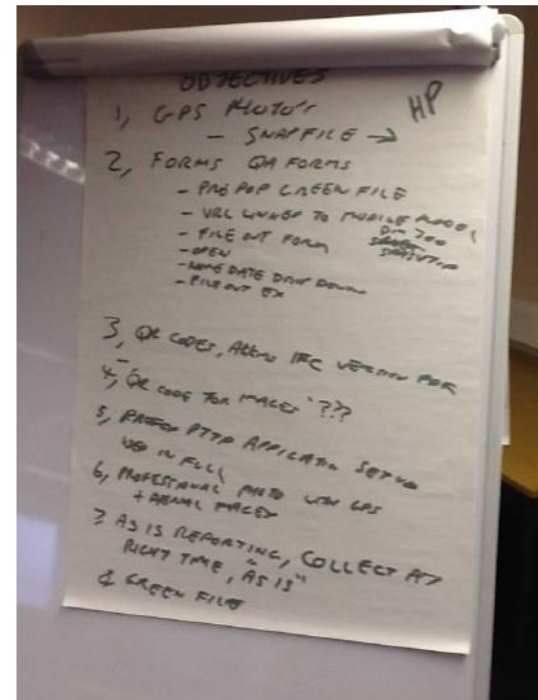 OBJECTIVES
HP
1, GPS PHOTO'S
- SNAPFILE →
2, FORMS QA FORMS
- PRE POP GREEN FILE
- URL LINKED TO MOBILE MODEL
- FILE OUT FORM
- OPEN
- NAME DATE DROP DOWN
- FILE OUT EX
3, QR CODES, IFC VERSION FOR
4, QR CODE FOR IMAGES ???
5, APPLICATION SETUP
USED IN FULL
6, PROFESSIONAL PHOTO WITH GPS
+ AERIAL IMAGES
7 AS IS REPORTING, COLLECT AT
RIGHT TIME, "AS IS"
& GREEN FILE